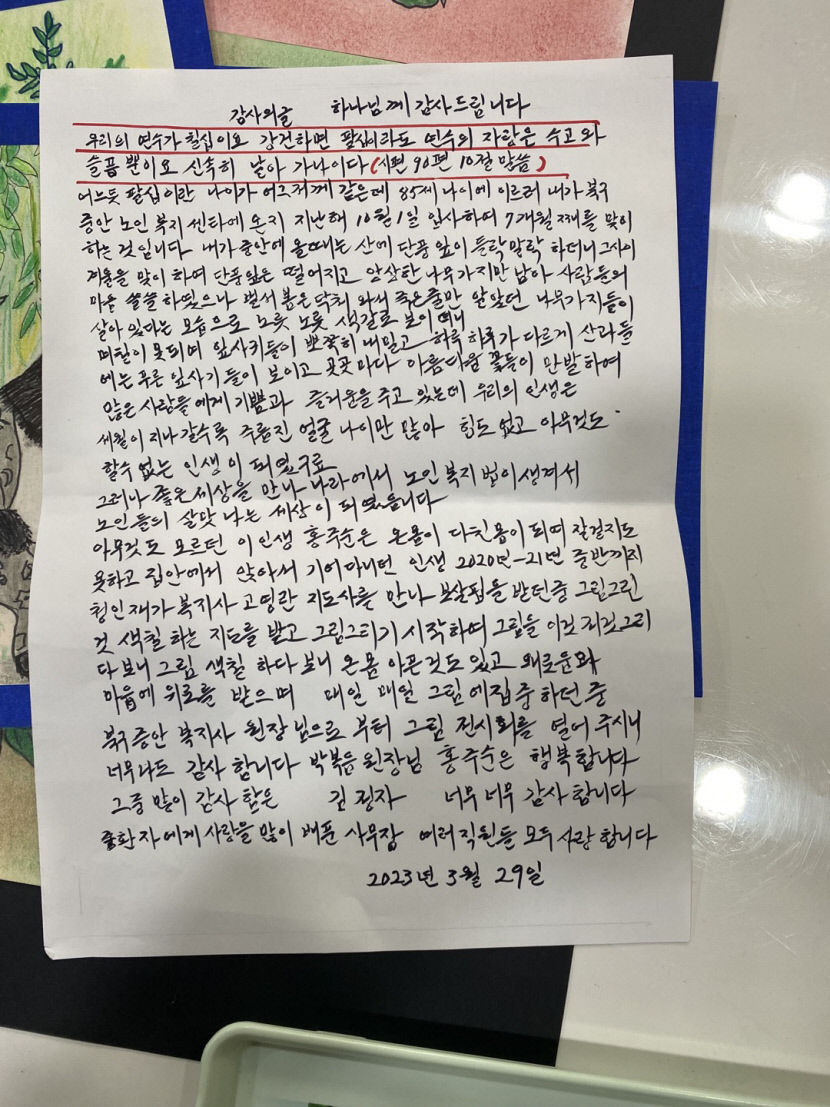 감사의글 하나님께 감사드립니다
우리의 연수가 칠십이요 강건하면 팔십이라도 연수의 자랑은 수고와
슬픔 뿐이요 신속히 날아 가나이다 (시편 90편 10절 말씀)
어느듯 팔십이란 나이가 어그저께 같은데 85세 나이에 이르러 내가 북구
중안 노인 복지 센타에 온지 지난해 10월 1일 입사하여 7개월 째를 맞이
하는 것입니다 내가 중안에 올때는 산에 단풍 잎이 들락말락 하더니 그사이
겨울을 맞이 하여 단풍잎은 떨어지고 앙상한 나무가지만 남아 사람들의
마음 쓸쓸 하였으나 벌서 봄은 닥쳐 와서 죽은줄만 알았던 나무가지들이
살아 있다는 모습으로 노릇 노릇 색갈로 보이더니
며칠이 못되며 잎사키들이 뾰쪽히 내밀고 하루 하루가 다르게 산과 들
에는 푸른 잎사기들이 보이고 곳곳마다 아름다운 꽃들이 만발하여
많은 사람들에게 기쁨과 즐러운을 주고 있는데 우리의 인생은
세월이 지나 갈수록 주름진 얼굴 나이만 많아 힘도 없고 아무것도
할수 없는 인생이 되였구료
그러나 좋은세상을 만나 나라에서 노인 복지 법이 생겨서
노인들의 살맛 나는 세상이 되였습니다
아무것도 모르던 이인생 홍주순은 온몸이 다친몸이 되며 잘걸지도
못하고 집안에서 앉아서 기어다니던 인생 2020년-21년 중반까지
청인재가 복지사 고영란 지도사를 만나 보살핌을 받던중 그림그린
것 색칠 하는 지도를 받고 그림그리기 시작하며 그림을 이것 저것 그리
다 보니 그림 색칠 하다 보니 온몸 아픈것도 잊고 왜로운와
마음에 위로를 받으며 매일 매일 그림에 집중 하던 중
북구 중안 복지사 원장님으로 부터 그림 전시회를 열어 주시니
너무나도 감사 합니다 박복음 원장님 홍주순은 행복합니다
그중 많이 감사 함은 김정자 너무 너무 감사 합니다
환자에게 사랑을 많이 베푼 사무장 여러 직원들 모두 사랑 합니다
2023년 3월 29일